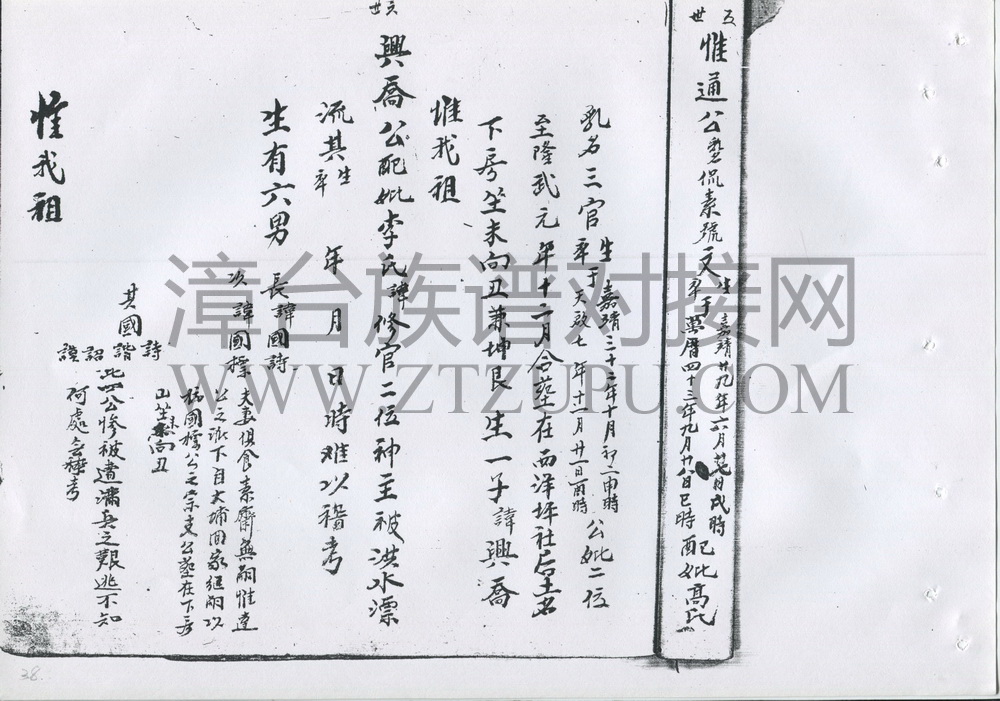 五世
惟通公墅侃素號文
生嘉靖廿九年六月廿七日戌時
卒于萬曆四十三年九月廿八日巳時
配妣高氏
乳名三官
生于嘉靖三十三年十月初二申時
卒天啟七年十一月廿一日酉時
公妣二位
至隆武元年十二月合葬在西洋坪社后土名
下房坐未向丑兼坤艮生一子諱興喬
惟我祖
六世
興喬公配妣李氏諱修官二位神主被洪水漂
流其生卒年月日時難以稽考
生有六男
長諱國詩
次諱國標
夫妻俱食素齋無嗣惟達
公之派下自大埔回家繼嗣以
為國標公之宗支公葬在下房
山坐未向丑
其國詩諧詔謨此四公慘被遭瀟兵之艱逃不知
何處無稽考
惟我祖
漳台族谱对接网
WWW.ZTZUPU.COM
38